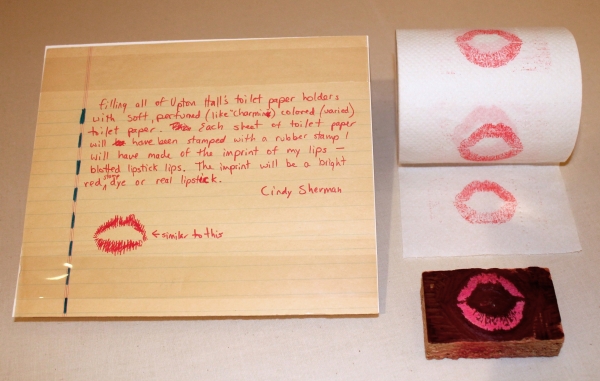 filling all of Upton Hall's toilet paper holders
with soft, perfumed (like "charmin") colored (varied)
toilet paper. Each sheet of toilet paper
will have been stamped with a rubber stamp I
will have made of the imprint of my lips —
blotted lipstick lips. The imprint will be a bright
red dye or real lipstick.
Cindy Sherman
← similar to this